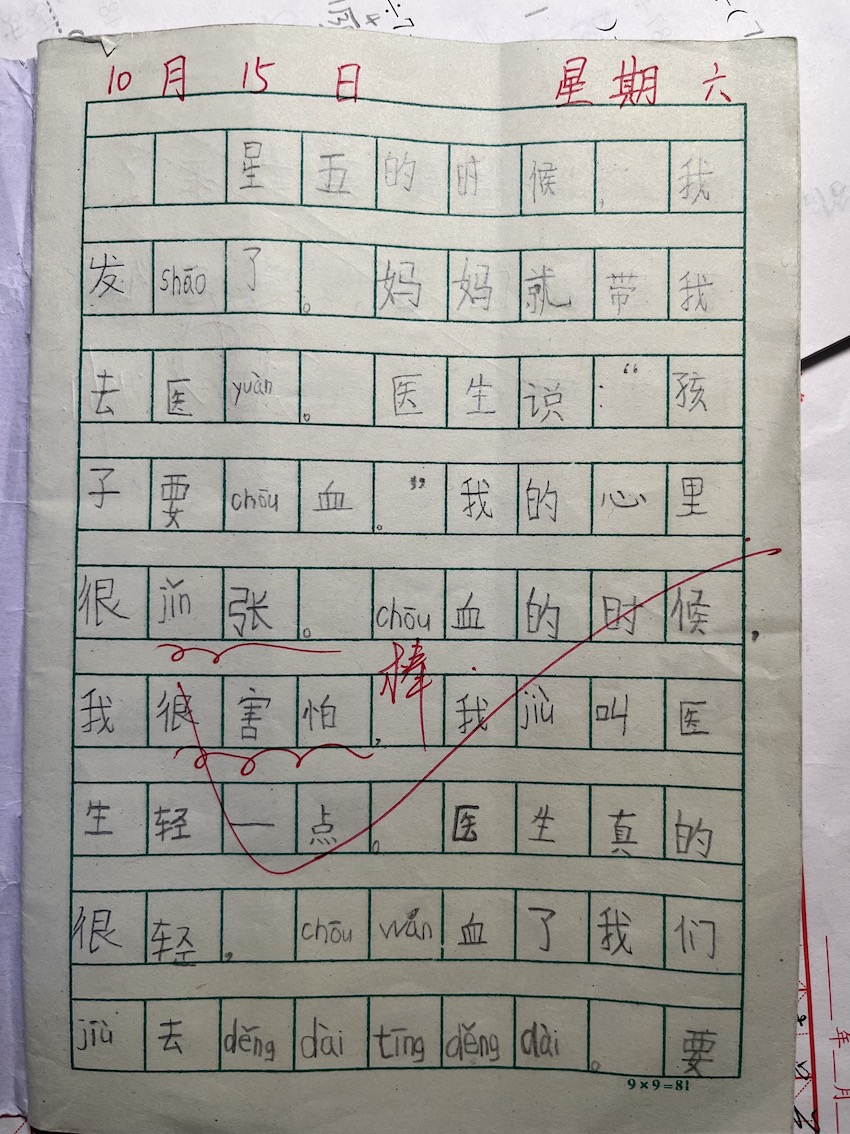 10月15日 星期六
星五的时候,我
发shāo了。妈妈就带我
去医yuàn。医生说:“孩
子要chōu血。”我的心里
很jǐn张。chōu血的时候,
棒
我很害怕,我jiù叫医
生轻一点。医生真的
很轻,chōu wán血了我们
jiù去děng dài tīng děng dài。要
9×9=81